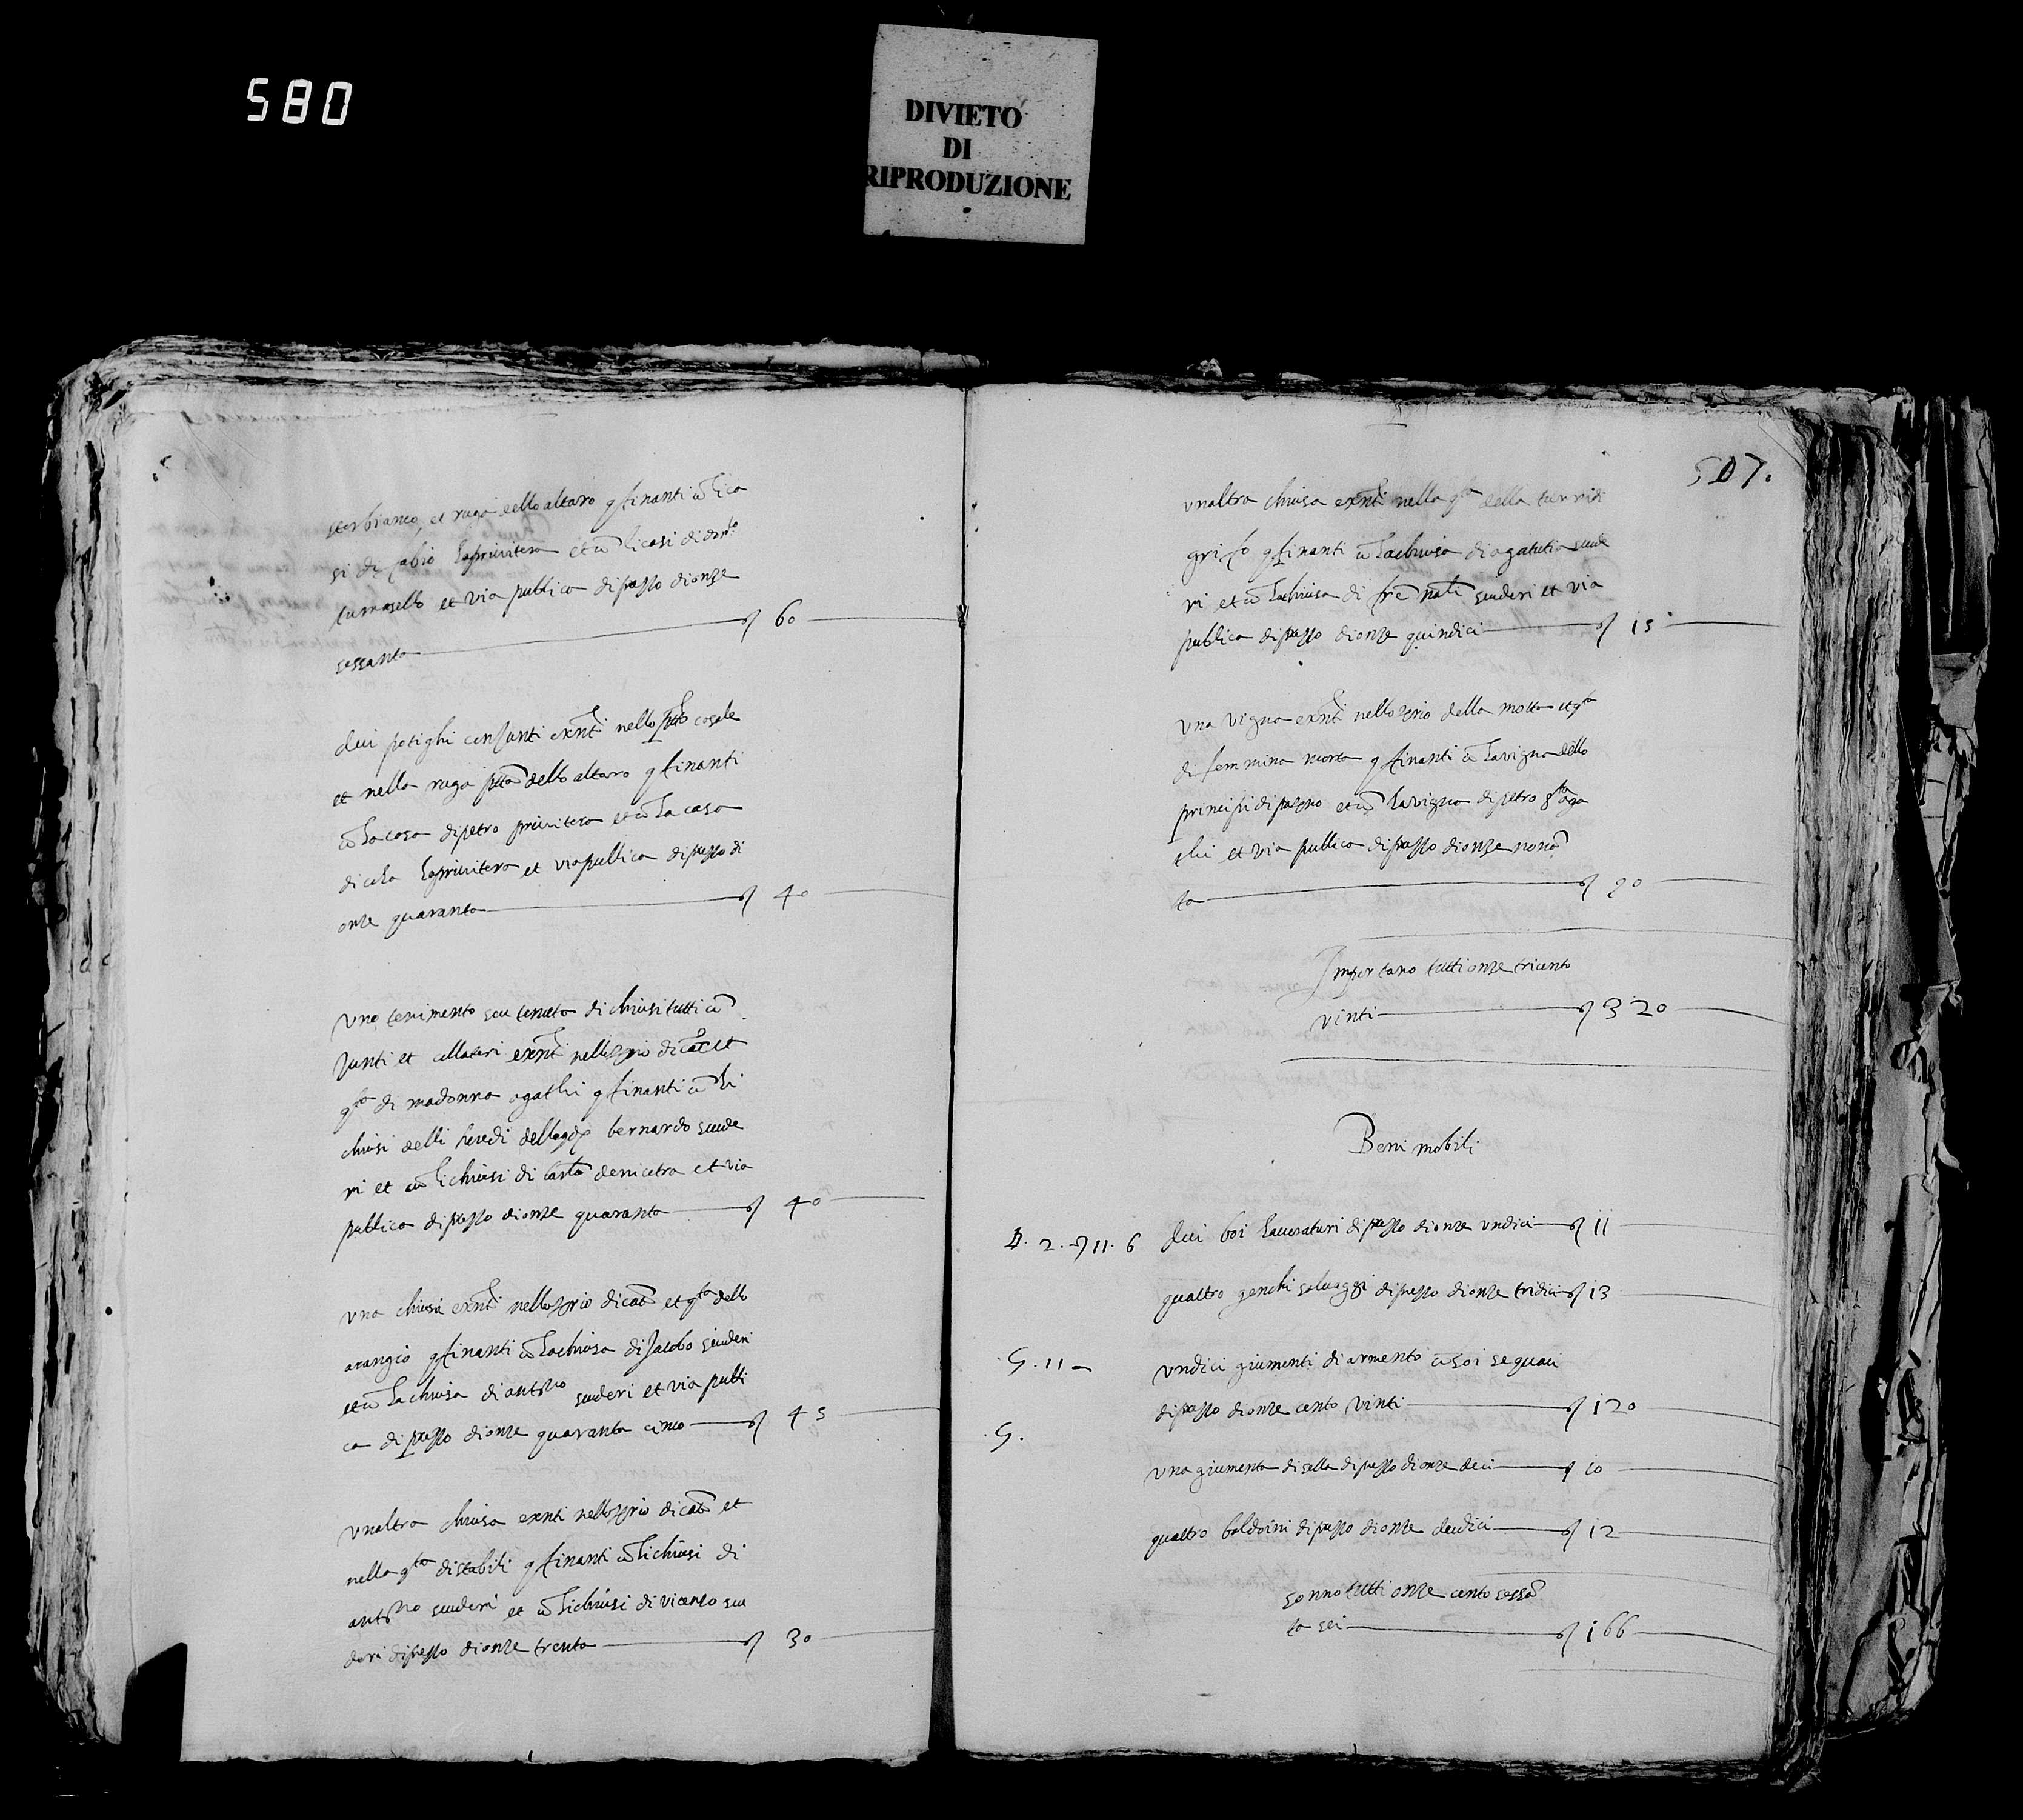 580
DIVIETO
DI
RIPRODUZIONE
sterbianco, et ruga dello altaro gfinanti cō li ca
si di fabio la privitera et cō li casi di
tumasello et via publica di prezzo di onze
sessanta 60
dui potighi coniunti exnti nello ptto casale
et nella ruga ptta dello altaro gfinanti
cō la casa di petro privitera et cō la casa
di cola la privitera et via publica di prezzo di
onze quaranta 40
uno tenimento seu tenuta di chiusi tutti cō
Junti et collaterali exnti nello trio di cat et
gta di madonna agathi gfinanti cō li
chiusi delli heredi dello qdm bernardo scude
ri et cō li chiusi di de nicotra et via
publica di prezzo di onze quaranta 40
una chiusa exnti nello trrio di cata et gta dello
arangio gfinanti cō la chiusa di Jacobo scuderi
et cō la chiusa di antno scuderi et via publi
ca di prezzo di onze quaranta cinco 45
unaltra chiusa exnti nello trrio di cata et
nella gta di stabili gfinanti cō li chiusi di
antno scuderi et cō li chiusi di vicenso scu
deri di prezzo di onze trenta 30
507.
unaltra chiusa exnti nella gta della turri di
grifo gfinanti cō la chiusa di agatutia scude
ri et cō la chiusa di scuderi et via
publica di prezzo di onze quindici 15
una vigna exnti nello trrio della motta et gta
di femmina morta gfinanti cō la vigna dello
principi di et cō la vigna di petro
et via publica di prezzo di onze nonā
ta 90
Importano tutti onze tricento
vinti 320
Beni mobili
B. 2. 11. 6 dui boi lauraturi di prezzo di onze undici 11
quattro genchi salvaggi di prezzo di onze tridici 13
G. 11 undici giumenti di armento cō soi sequaci
di prezzo di onze cento vinti 120
G.
una giumenta di sella di prezzo di onze deci 10
quattro baldoini di prezzo di onze dudici 12
sonno tutti onze cento sessā
ta sei 166